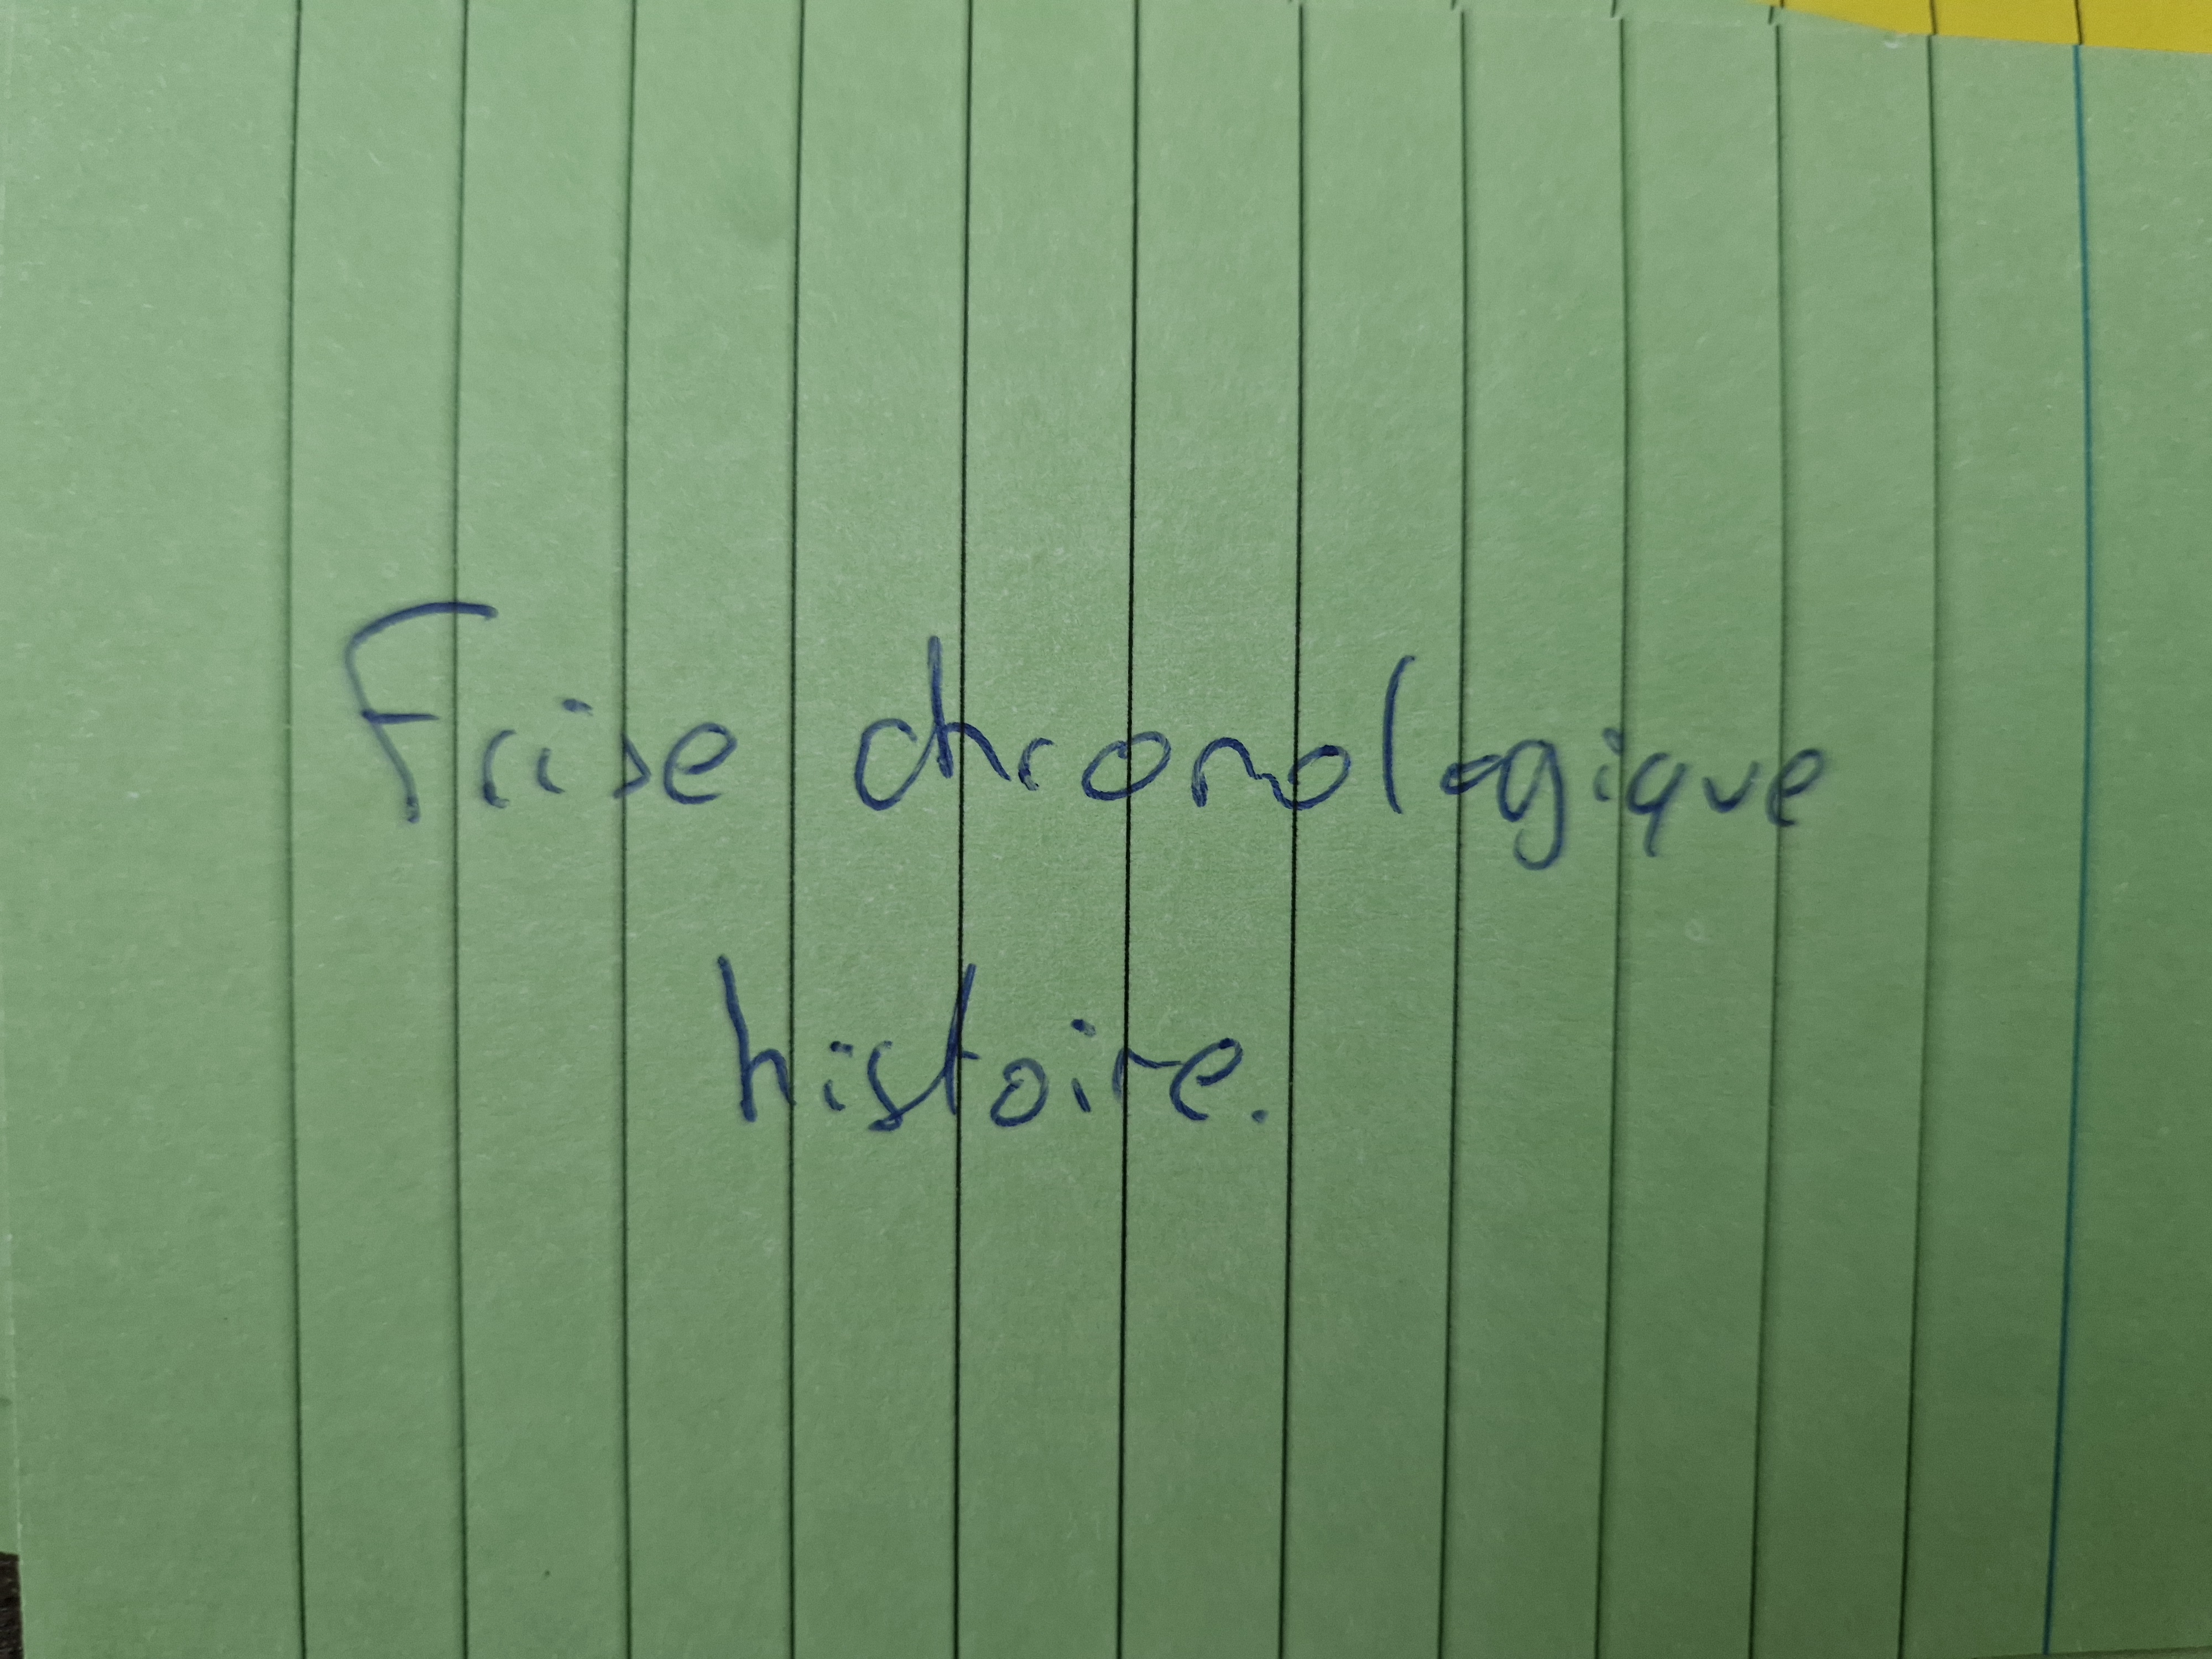 Frise chronologique
histoire.